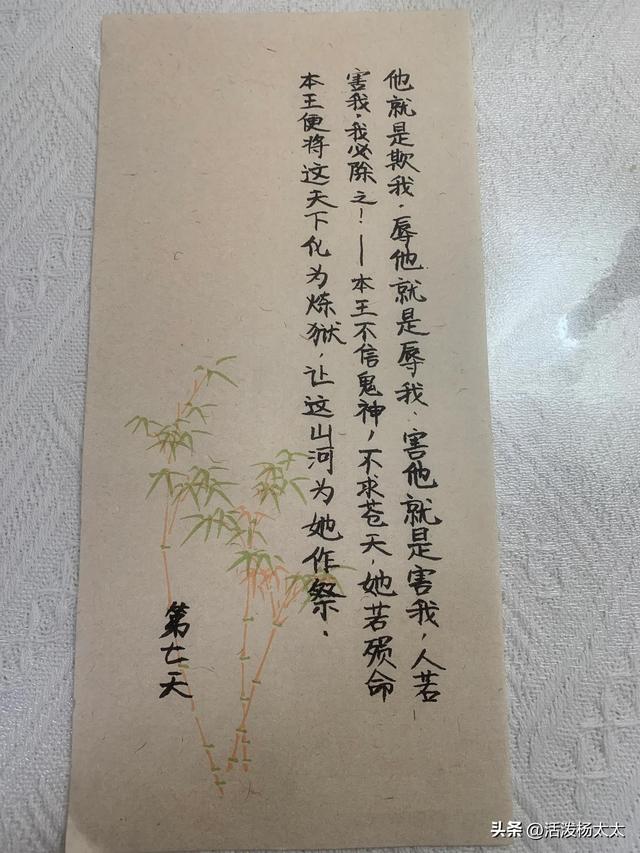 他就是欺我，辱他就是辱我，害他就是害我，人若
害我，我必除之！—本王不信鬼神，不求苍天，她若殒命
本王便将这天下化为炼狱，让这山河为她作祭．
第七天
头条 @活泼杨太太